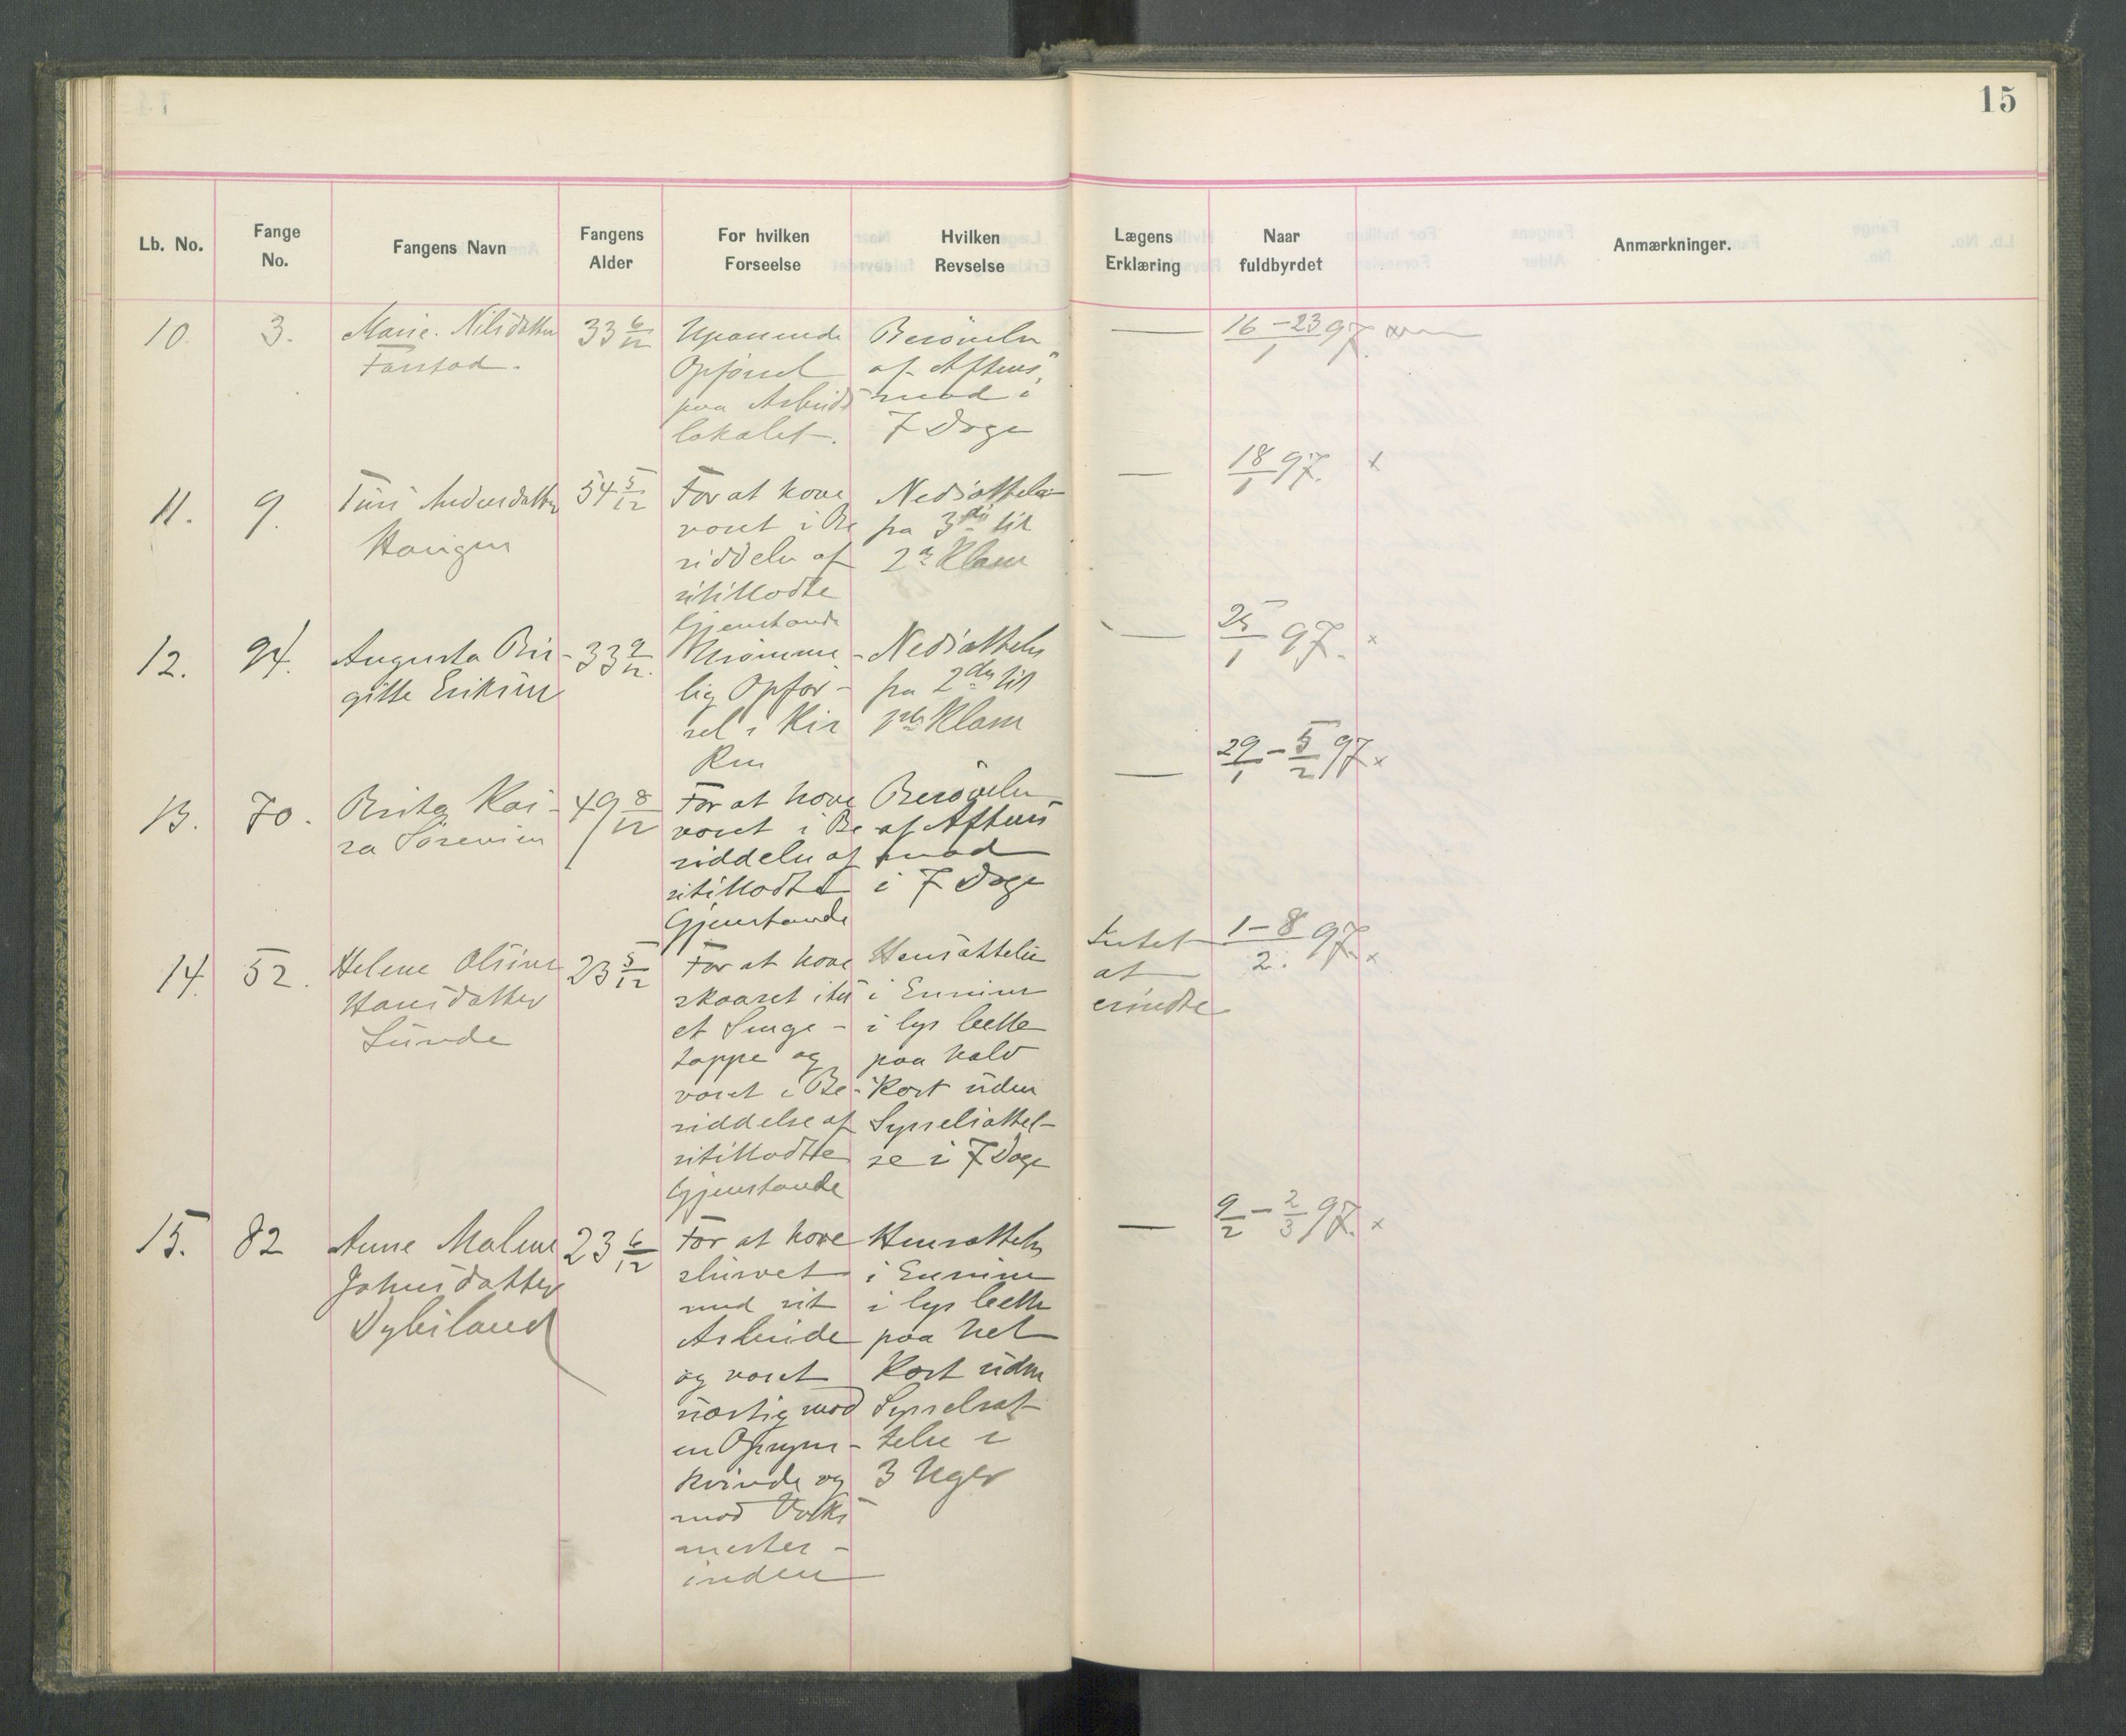 15
Lb. No.
Fange No.
Fangens Navn
Fangens Alder
For hvilken Forseelse
Hvilken Revselse
Lægens Erklæring
Naar fuldbyrdet
Anmærkninger.
10.
3.
Marie Nilsdatter
Farstad.
33 6/12
Upassende
Opførsel
paa Arbeids
lokalet.
Berøvelse
af Aftens
mad i
7 Dage
—
16-23/1 97.
11.
9.
Turi Andersdatter
Haugen
54 5/12
For at have
været i Be
siddelse af
utilladte
Gjenstande
Nedsættelse
fra 3die til
2n Klasse
—
18/1 97.
x
12.
94.
Augusta Bir-
gitte Eriksen
33 9/12.
Usømme-
lig Opfør-
sel i Kir
ken
Nedsættelse
fra 2den til
1ste Klasse
—
25/1 97.
x
13.
70.
Berita Kai-
sa Sørensen
49 8/12
For at have
været i Be
siddelse af
utilladte
Gjenstande
Berøvelse
af Aftens
mad
i 7 Dage
—
29/1 - 5/2 97.
x
14.
52.
Helene Olsine
Hansdatter
Sunde
23 5/12
For at have
skaaret itu
et Senge-
tæppe og
været i Be-
siddelse af
utilladte
Gjenstande
Hensættelse
i Enrum
i lys Celle
paa halv
Kost uden
Sysselsættel-
se i 7 Dage
Intet
at
erindre
1-8/2. 97.
x
15.
82
Anne Malene
Johnsdatter
Dybesland
23 6/12
For at have
slurvet
med sit
Arbeide
og været
uartig mod
en Opsyns-
kvinde og
mod Værks
mester-
inden
Hensættelse
i Enrum
i lys Celle
paa hel
Kost uden
Sysselsæt-
telse i
3 Uger
—
9/2 - 2/3 97.
x